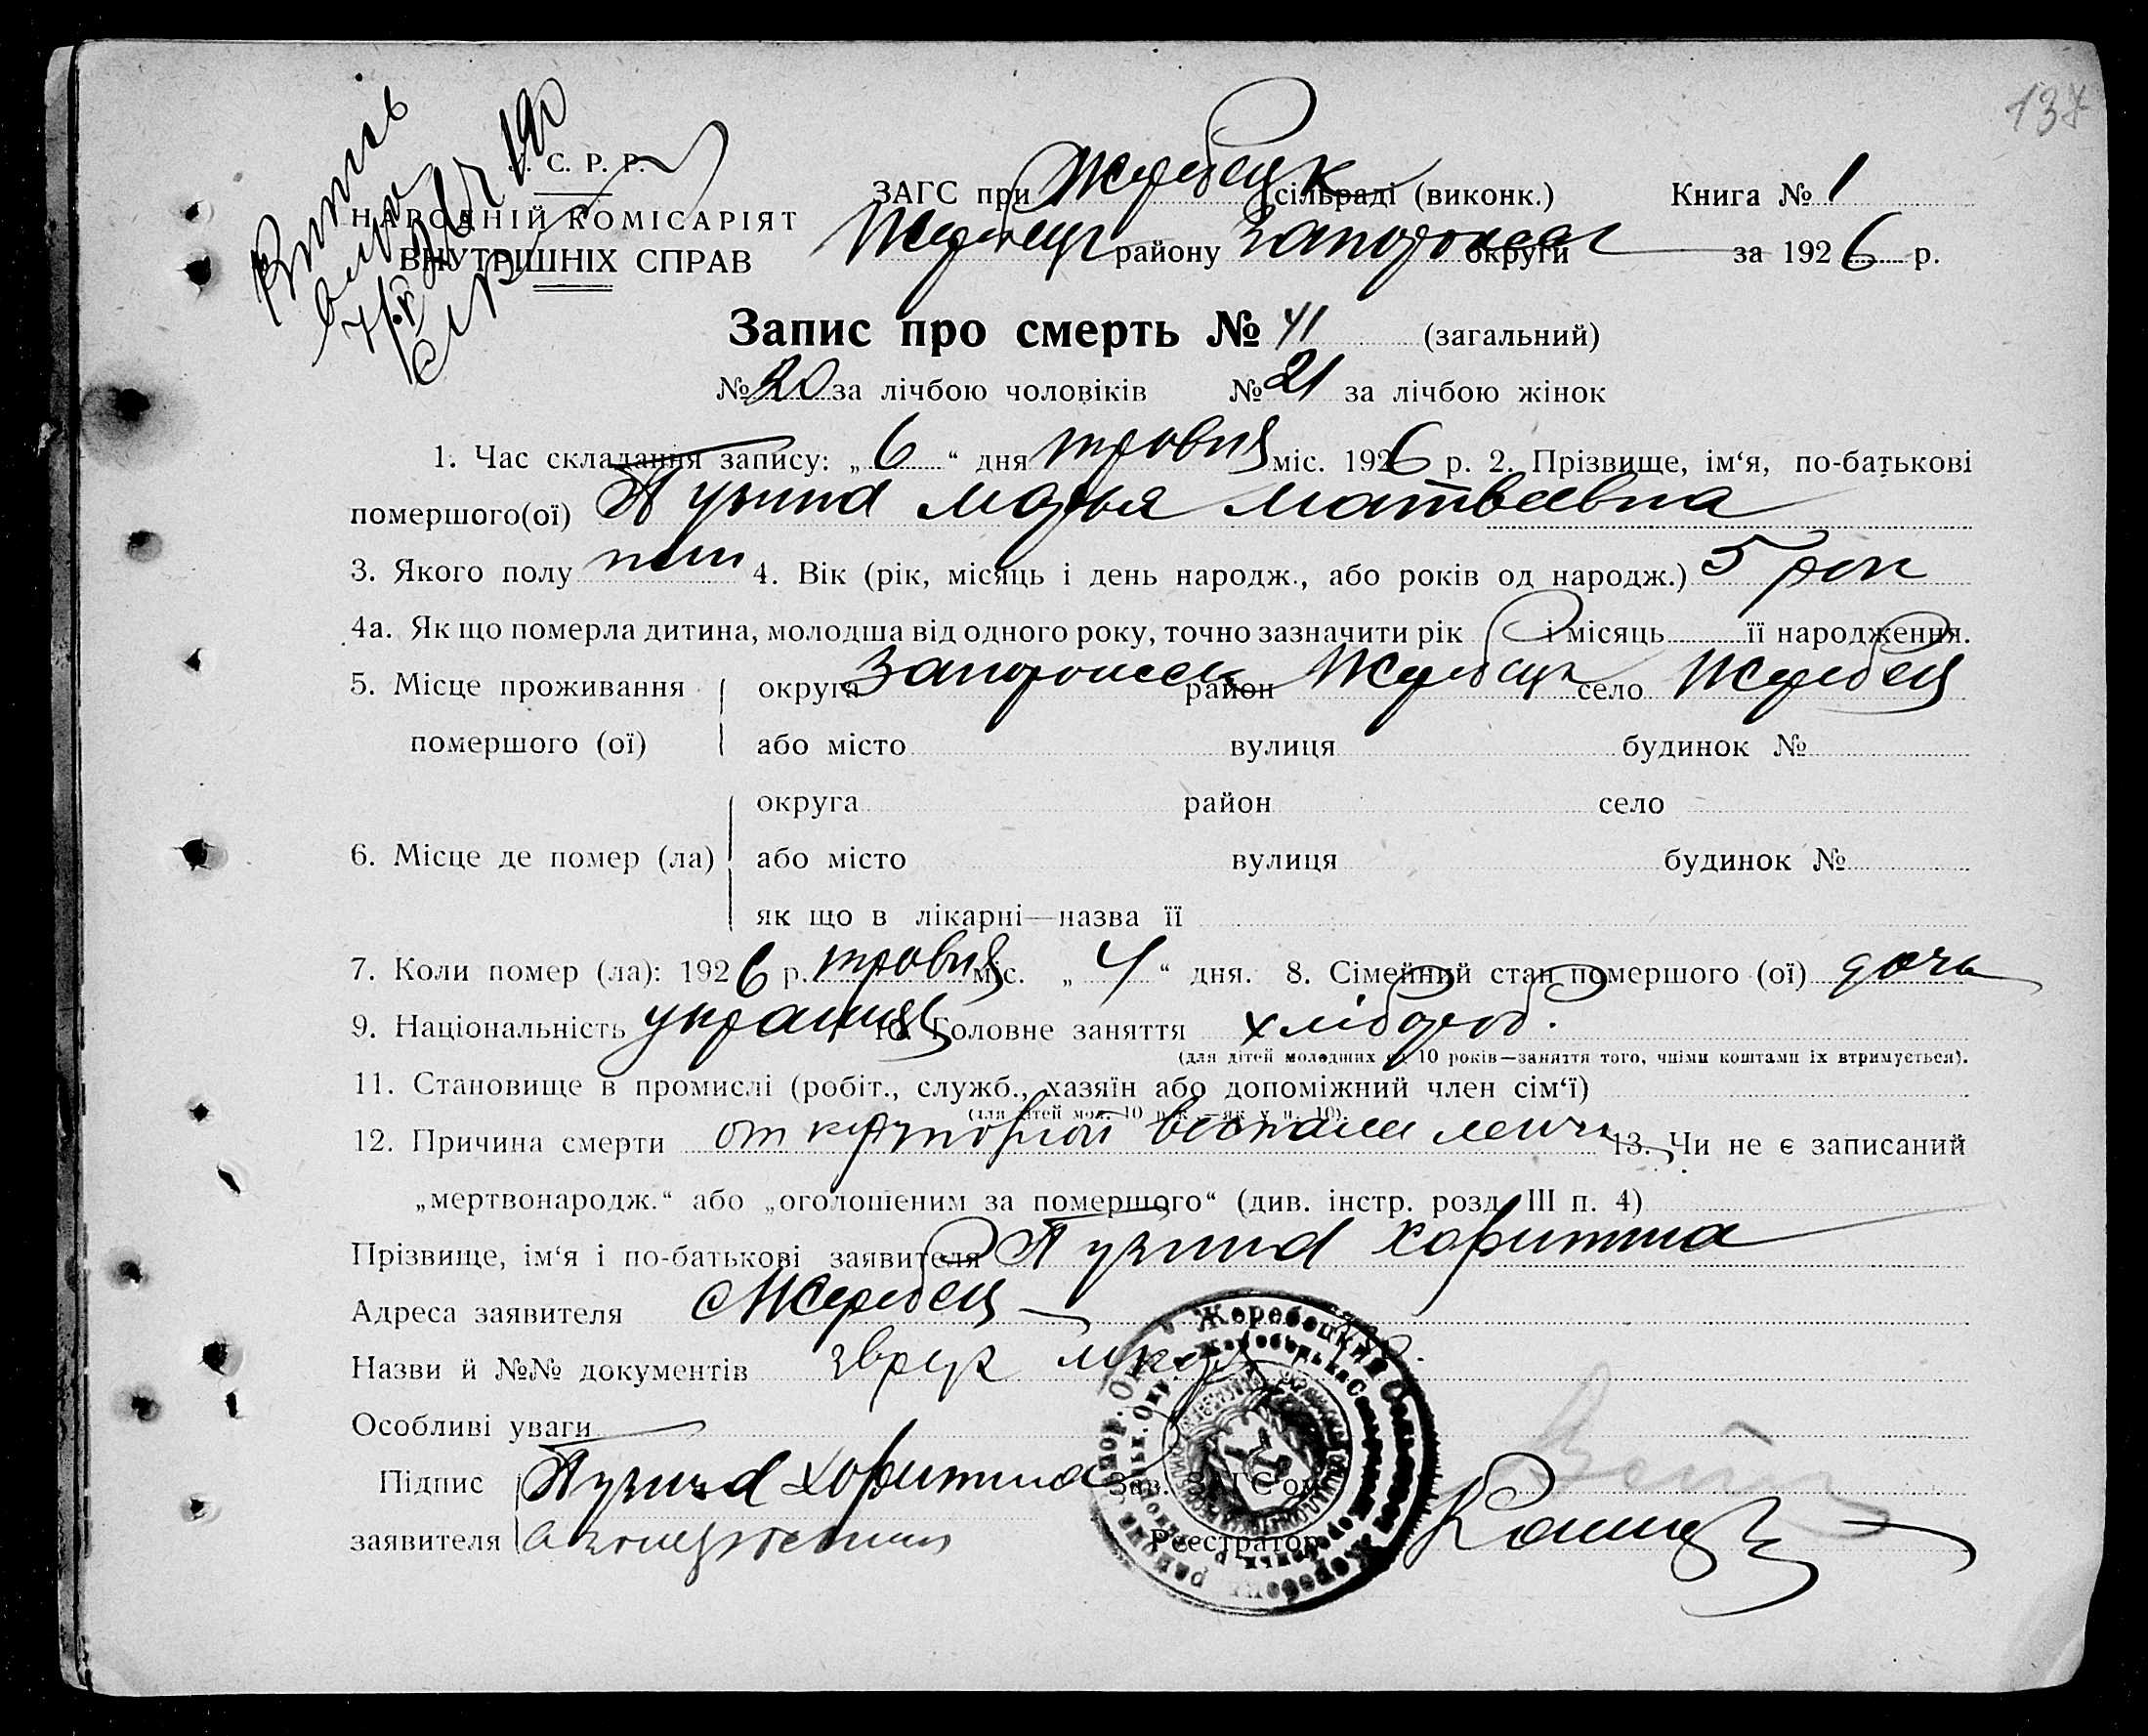 137
С. Р. Р.
НАРОДНІЙ КОМІСАРІЯТ
ВНУТРІШНІХ СПРАВ
ЗАГС при Жеребецк сільраді (виконк.) Книга № 1
Жеребецк району Запорожск округи за 1926 р.
Запис про смерть № 41 (загальний)
№ 20 за лічбою чоловіків № 21 за лічбою жінок
1. Час складання запису: „6“ дня травня міс. 1926 р. 2. Прізвище, ім‘я, по-батькові
помершого(ої) Марья Матвеевна
3. Якого полу 4. Вік (рік, місяць і день народж., або років од народж.) 5 рок
4а. Як що померла дитина, молодша від одного року, точно зазначити рік і місяць її народження.
5. Місце проживання округа Запорожск район Жеребецк село Жеребец
помершого (ої) або місто вулиця будинок №
округа район село
6. Місце де помер (ла) або місто вулиця будинок №
як що в лікарні—назва її
7. Коли помер (ла): 1926 р. травня міс. „4“ дня. 8. Сімейний стан помершого (ої) дочь
9. Національність 10. Головне заняття хлібороб.
(для дітей молодших од 10 років—заняття того, чиїми коштами їх втримується).
11. Становище в промислі (робіт., служб., хазяїн або допоміжний член сім‘ї)
(для дітей мол. 10 рок.—як у п. 10).
12. Причина смерти от 13. Чи не є записаний
„мертвонародж.“ або „оголошеним за помершого“ (див. інстр. розд. III п. 4)
Прізвище, ім‘я і по-батькові заявителя Харитина
Адреса заявителя с Жеребец
Назви й №№ документів
Особливі уваги
Підпис Харитина Зав. ЗАГС‘ом
заявителя Реєстратор